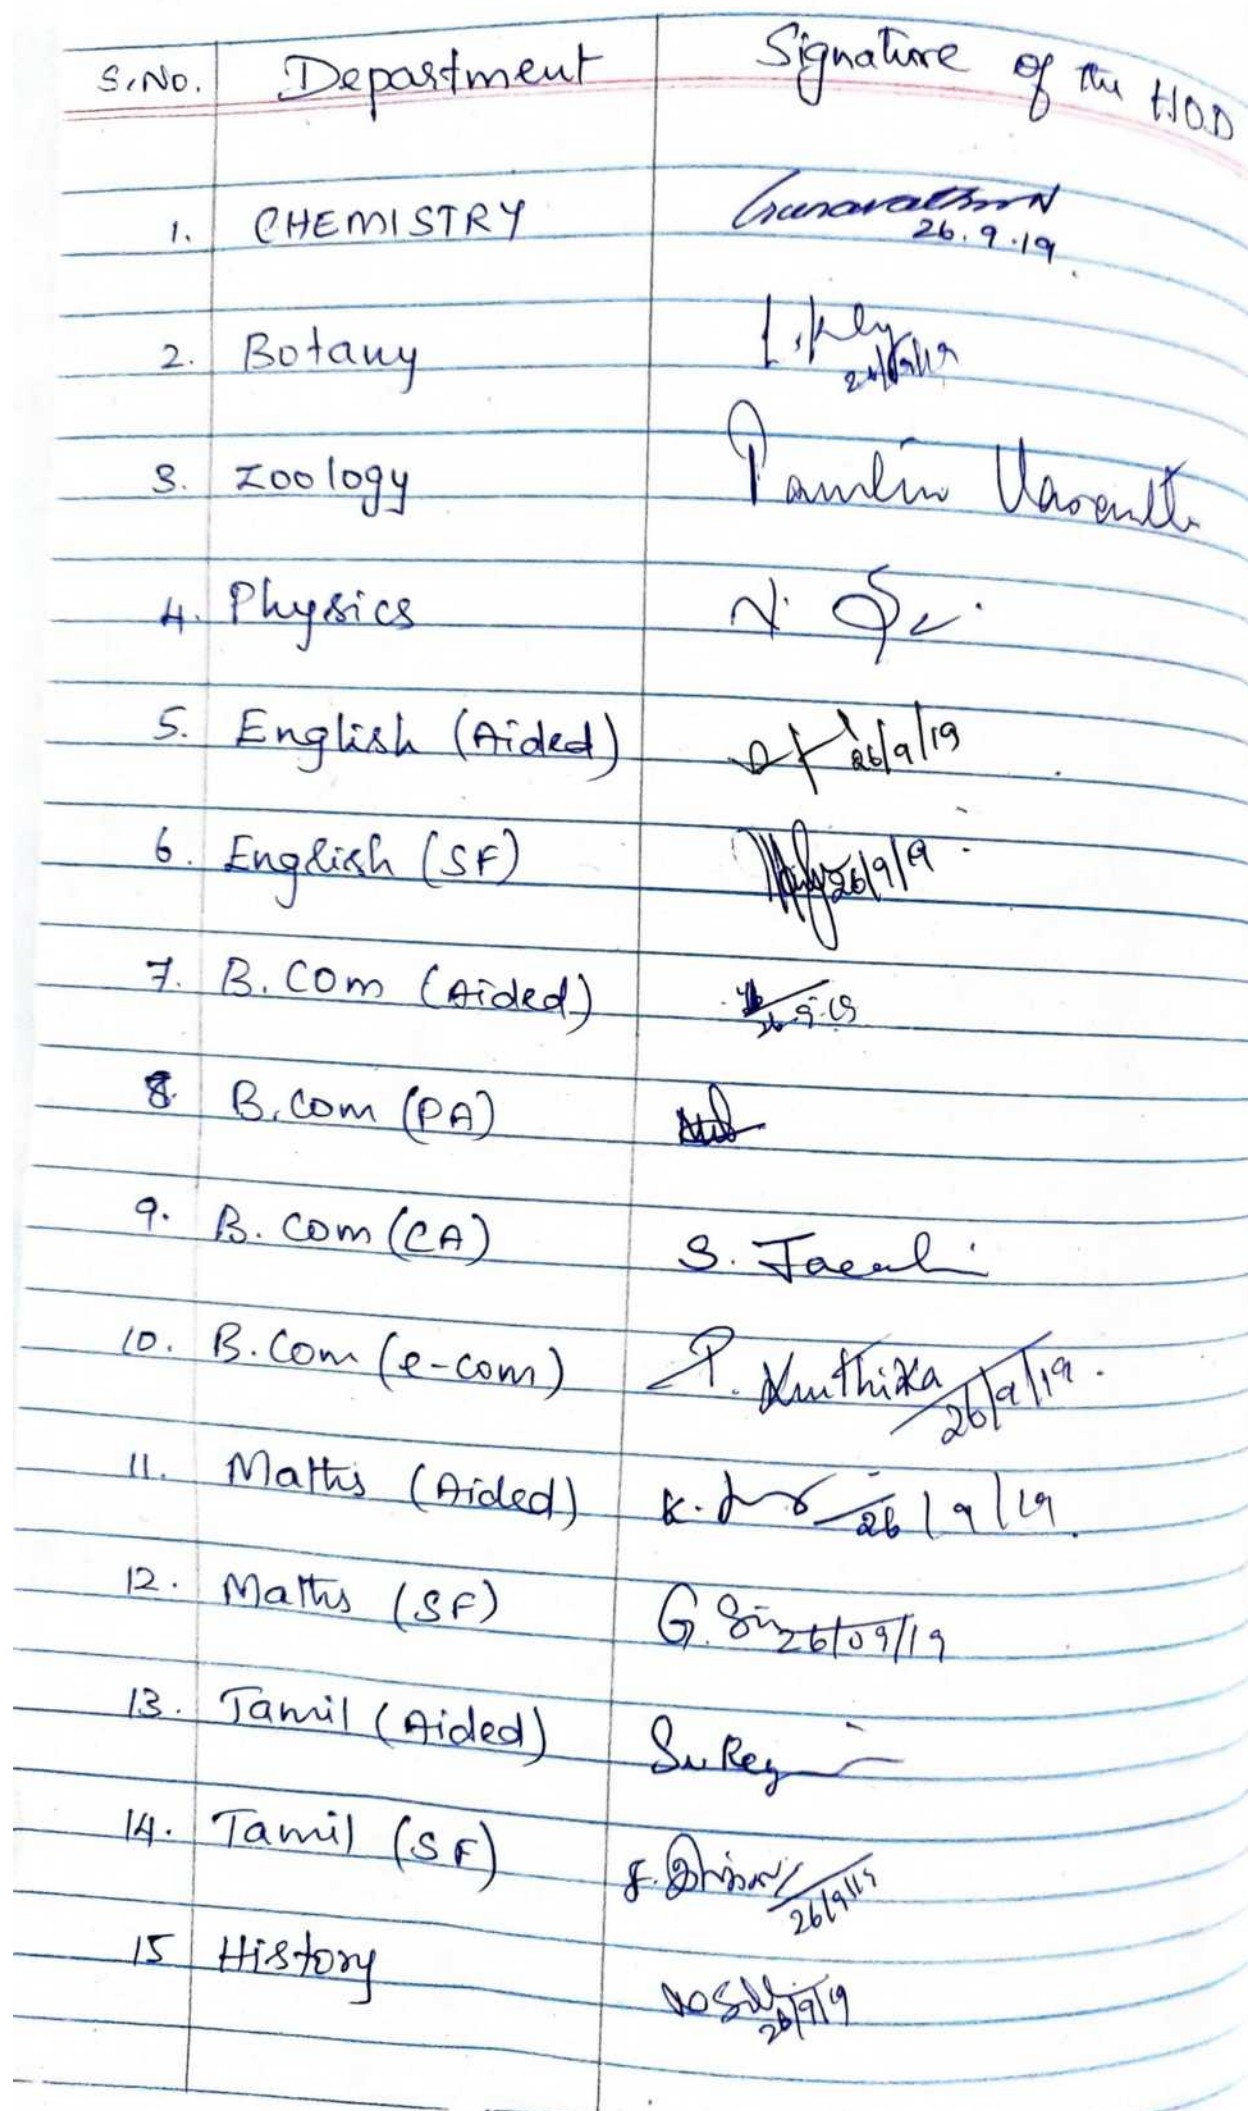 S.No. Department Signature of the H.O.D
1. CHEMISTRY
26.9.19
2. Botany
3. Zoology
4. Physics
5. English (Aided) 26/9/19
6. English (SF) 26/9/19
7. B.Com (Aided)
26.9.19
8. B.Com (PA)
9. B.Com (CA) S.
10. B.Com (e-com) P. Kruthika
26/9/19.
11. Maths (Aided) K. 26/9/19.
12. Maths (SF) G. 26/09/19
13. Tamil (Aided)
14. Tamil (SF)
26/9/19
15 History
26/9/19